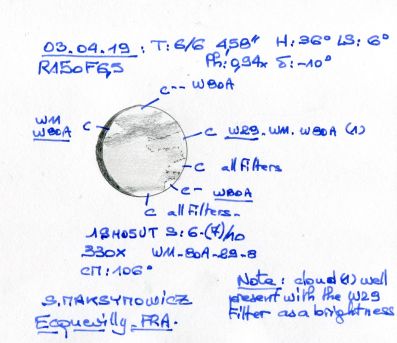 03.04.19 : T: 6/6 4,58" H: 36° LS: 6°
R150F6,5 Ph: 0,94x Σ: -10°
C -- W80A
WM C
W80A
C W29. WM. W80A (1)
C all Filters
C - W80A
C all Filters -
18H05UT S: 6-(7)/10
330X WM-80A-29-8
CM: 106°
S. MAKSYMOWICZ
Ecquevilly - FRA.
Note : cloud (1) well
present with the W29
Filter as a brightness